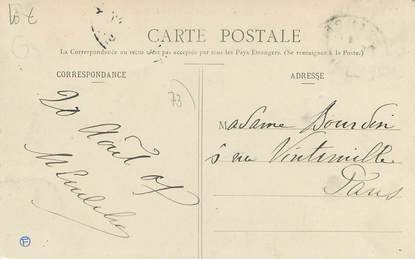 10 €
CARTE POSTALE
La Correspondance au recto n'est pas acceptée par tous les Pays Étrangers. (Se renseigner à la Poste.)
CORRESPONDANCE
20 Août 07
73
ADRESSE
Madame Bourdin
5 rue Vintimille
Paris